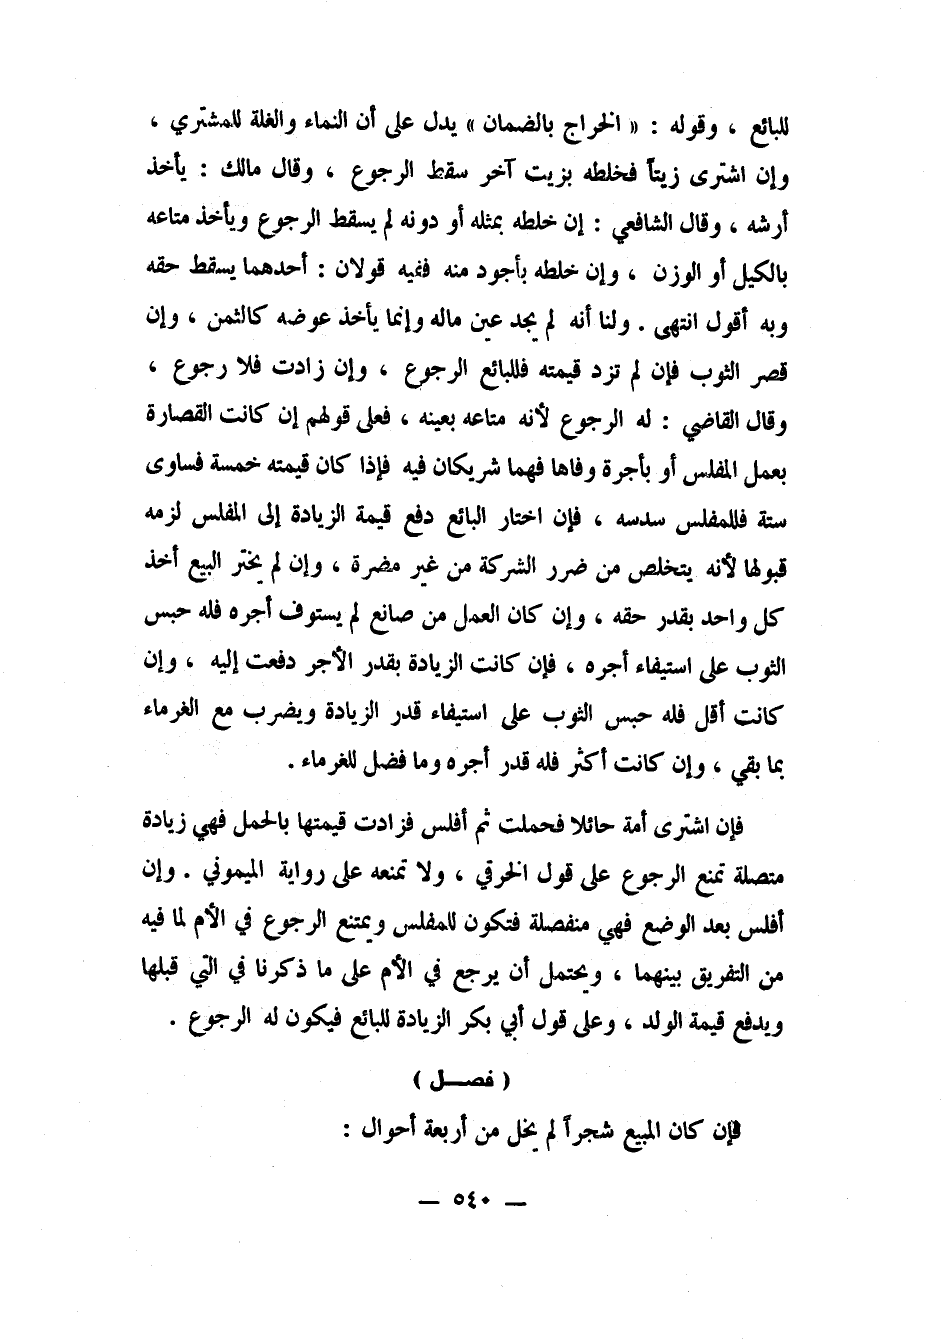 للبائع ، وقوله : « الخراج بالضمان » يدل على أن النماء والغلة للمشتري ،
وإن اشترى زيتاً فخلطه بزيت آخر سقط الرجوع ، وقال مالك : يأخذ
أرشه ، وقال الشافعي : إن خلطه بمثله أو دونه لم يسقط الرجوع ويأخذ متاعه
بالكيل أو الوزن ، وإن خلطه بأجود منه ففيه قولان : أحدهما يسقط حقه
وبه أقول انتهى . ولنا أنه لم يجد عين ماله وإنما يأخذ عوضه كالثمن ، وإن
قصر الثوب فإن لم تزد قيمته فللبائع الرجوع ، وإن زادت فلا رجوع ،
وقال القاضي : له الرجوع لأنه متاعه بعينه ، فعلى قولهم إن كانت القصارة
بعمل المفلس أو بأجرة وفاها فهما شريكان فيه فإذا كان قيمته خمسة فساوى
ستة فللمفلس سدسه ، فإن اختار البائع دفع قيمة الزيادة إلى المفلس لزمه
قبولها لأنه يتخلص من ضرر الشركة من غير مضرة ، وإن لم يختر البيع أخذ
كل واحد بقدر حقه ، وإن كان العمل من صانع لم يستوف أجره فله حبس
الثوب على استيفاء أجره ، فإن كانت الزيادة بقدر الأجر دفعت إليه ، وإن
كانت أقل فله حبس الثوب على استيفاء قدر الزيادة ويضرب مع الغرماء
بما بقي ، وإن كانت أكثر فله قدر أجره وما فضل للغرماء .
فإن اشترى أمة حائلا فحملت ثم أفلس فزادت قيمتها بالحمل فهي زيادة
متصلة تمنع الرجوع على قول الخرقي ، ولا تمنعه على رواية الميموني . وإن
أفلس بعد الوضع فهي منفصلة فتكون للمفلس ويمتنع الرجوع في الأم لما فيه
من التفريق بينهما ، ويحتمل أن يرجع في الأم على ما ذكرنا في التي قبلها
ويدفع قيمة الولد ، وعلى قول أبي بكر الزيادة للبائع فيكون له الرجوع .
( فصــل )
فإن كان المبيع شجراً لم يخل من أربعة أحوال :
— ٥٤٠ —